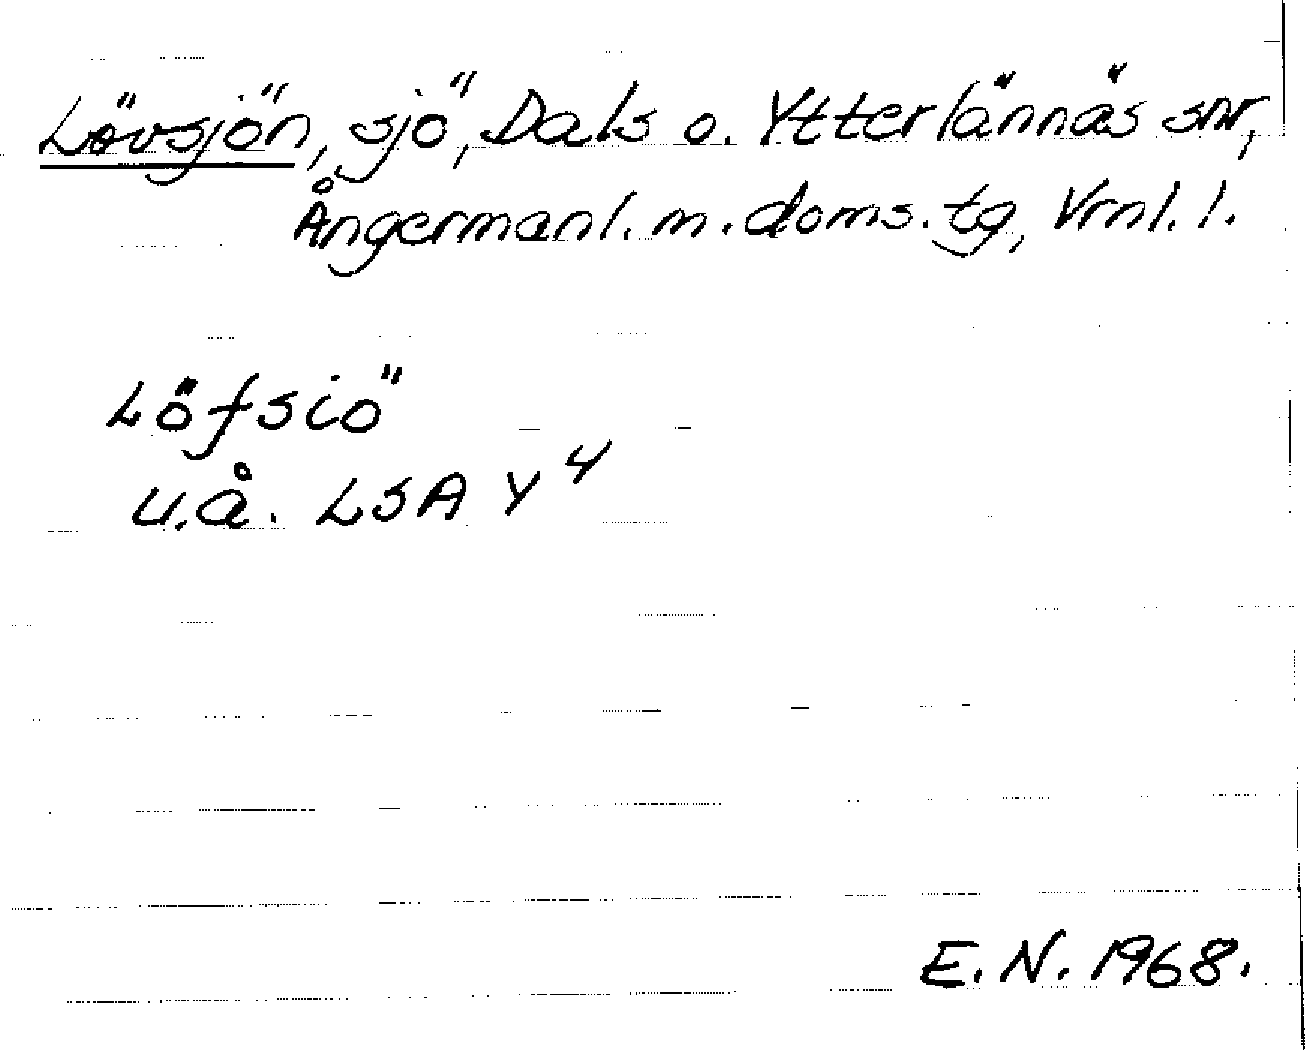 Lövsjön, sjö, Dals o. Ytterlännäs snr,
Ångermanl. m. doms. tg, Vrnl. l.
Löfsiö
u.å. LSA Y 4
E.N. 1968.